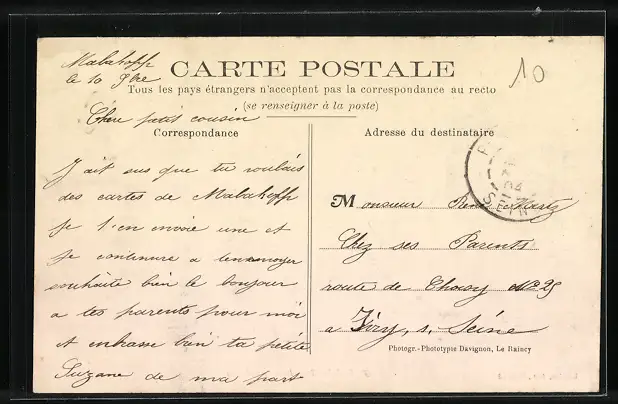 Malakoff
le 10 9bre
10
CARTE POSTALE
Tous les pays étrangers n'acceptent pas la correspondance au recto
(se renseigner à la poste)
Chere petit cousin
Correspondance
Adresse du destinataire
J ait sus que tu voulais
des cartes de Malakoff
je t'en envoie une et
je continure a tenvoyer
souhaite bien le bonjour
a tes parents pour moi
et enbrasse bien ta petite
Suzane de ma part
Monsieur René
Chez ses Parents
route de Choisy No 29
a Ivry, s, Seine
SEINE
Photogr.-Phototypie Davignon, Le Raincy